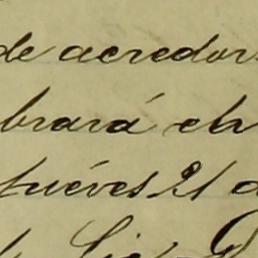 de acredor
brará en
juéves 21 d